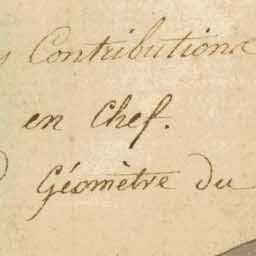 Contributions
en Chef.
Géomètre du